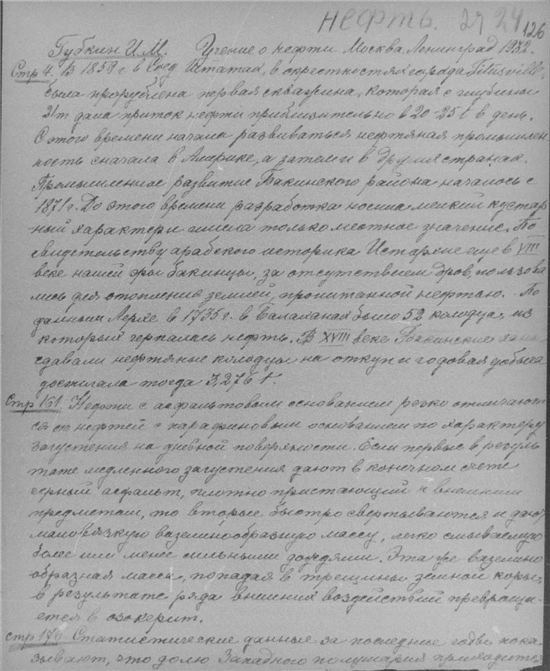 нефть. 27 24 126
Губкин И.М. Учение о нефти Москва, Ленинград 1932.
Стр 4. В 1859 г. в Соед. Штатах, в окрестностях города Titusville
была пробурена первая скважина, которая с глубины
21 м дала приток нефти приблизительно в 20-25 t в день.
С этого времени начала развиваться нефтяная промышлен
ность сначала в Америке, а затем и в других странах.
Промышленное развитие Бакинского района началось с
1871 г. До этого времени разработка носила мелкий кустар
ный характер и имела только местное значение. По
свидетельству арабского историка Истархие еще в VIII
веке нашей эры бакинцы, за отсутствием дров, пользова
лись для отопления землей, пропитанной нефтью. По
данным Лерхе в 1735 г. в Балаханах было 52 колодца, из
которых черпалась нефть. В XVIII веке Бакинские ханы
сдавали нефтяные колодцы на откуп и годовая добыча
достигала тогда 3,276 t.
Стр 151 Нефти с асфальтовым основанием резко отличают
ся от нефтей с парафиновым основанием по характеру
загустения на дневной поверхности. Если первые в резуль
тате медленного загустения дают в конечном счете
черный асфальт, плотно пристающий к внешним
предметам, то вторые быстро свертываются и дают
маловязкую вазелинообразную массу, легко смываемую
более или менее сильными дождями. Эта же вазелино
образная масса, попадая в трещины земной коры,
в результате ряда внешних воздействий превраща-
ется в озокерит.
стр 170 Статистические данные за последние годы пока
зывают, что долю Западного полушария приходится